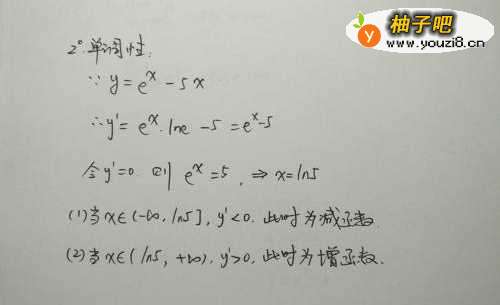 柚子吧
www.youzi8.cn
2° 单调性:
∵ y = e^x - 5x
∴ y' = e^x · lne - 5 = e^x-5
令 y'=0. 则 e^x = 5, ⇒ x = ln5
(1) 当 x∈(-∞, ln5], y'<0. 此时为减函数.
(2) 当 x∈(ln5, +∞). y'>0. 此时为增函数.